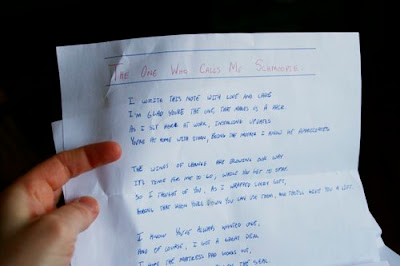 THE ONE WHO CALLS ME
I WRITE THIS NOTE WITH LOVE AND CARE
I'M GLAD YOU'RE THE ONE, THAT MAKES US A PAIR
AS I SIT HERE AT WORK, INSTALLING UPDATES
YOU'RE AT HOME WITH ETHAN, BEING THE MOTHER I KNOW HE APPRECIATES
THE WINDS OF CHANGE ARE BLOWING OUR WAY
IT'S YOURS FOR ME TO GO, WHILE YOU GET TO STAY
SO I THOUGHT OF YOU, AS I WRAPPED LUCKY LEFT,
HOPING THAT WHEN YOU'RE DOWN YOU CAN USE THEM, AND THEY'LL GIVE YOU A LIFT.
I KNOW YOU'VE ALWAYS WANTED ONE,
AND OF COURSE, I GOT A GREAT DEAL
I HOPE THE MATTRESS PAD WORKS OUT,
THE SEAL